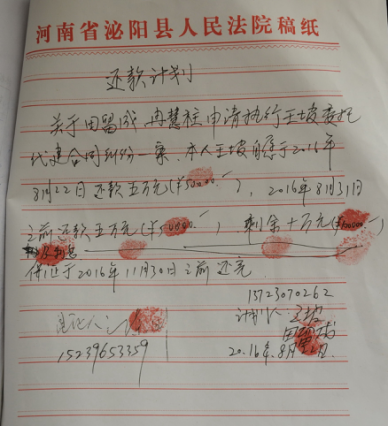 河南省泌阳县人民法院稿纸
还款计划
关于田留成 冉慧柱 申请执行王坡委托
代建合同纠纷一案、本人王坡自愿于2016年
8月22日还款五万元(¥50000.-), 2016年8月31日
之前还款五万元(¥50000.-) 剩余十万元(¥100000.-)
保证于2016年11月30日之前还完
15723070262
计划人:王坡
担保人:
15239653359
2016年8月